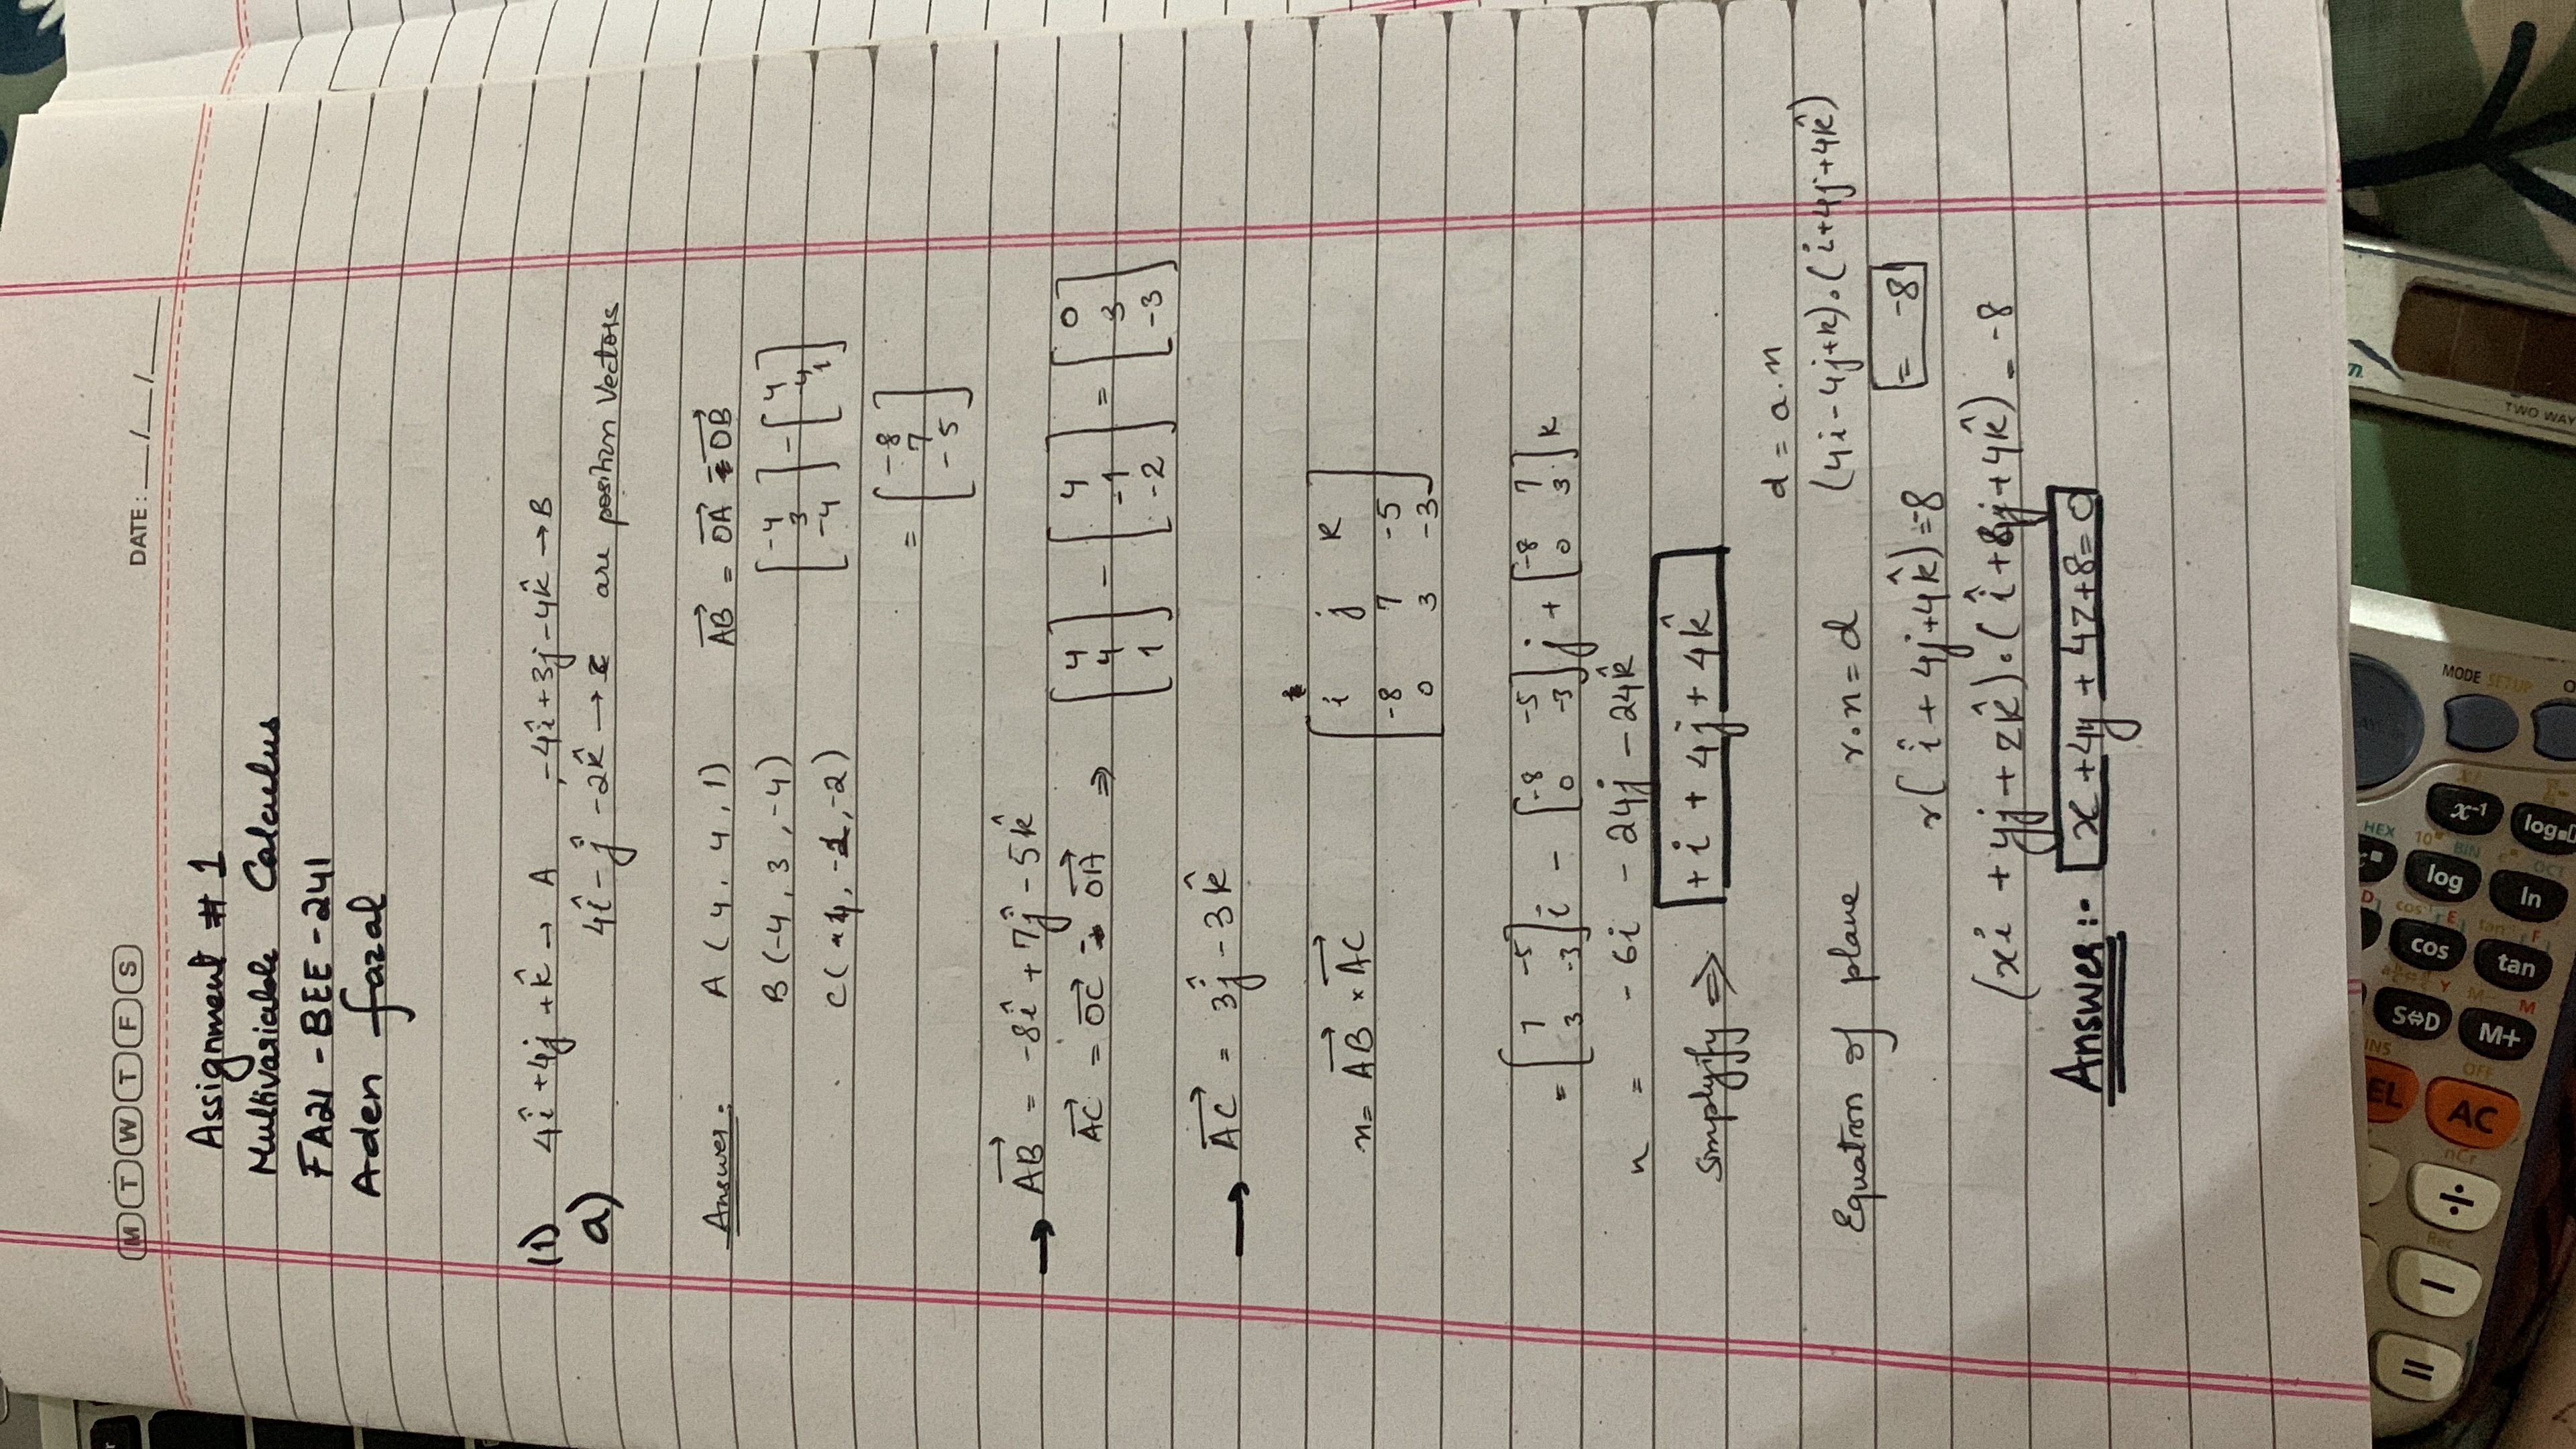 M T W T F S
DATE: __/__/____
Assignment # 1
Multivariable Calculus
FA21 - BEE - 241
Aden fazal
(1) 4î + 4j + k̂ → A , -4î + 3j - 4k̂ → B
a) 4î - ĵ - 2k̂ → C are position Vectors
Answer:- A ( 4, 4, 1) AB = OA - OB
B (-4, 3, -4) [-4 3 -4] - [4 4 1]
C( 4, -1, -2)
= [-8 7 -5]
→ AB = -8î + 7ĵ - 5k̂
AC = OC - OA ⇒ [4 4 1] - [4 -1 -2] = [0 3 -3]
→ AC = 3ĵ - 3k̂
n = AB × AC
i j k
-8 7 -5
0 3 -3
= [7 -5 3 -3] i - [-8 -5 0 -3] j + [-8 7 0 3] k
n = - 6i - 24j - 24k̂
Simplyify ⇒ + i + 4j + 4k̂
d = a.n
Equation of plane r.n = d (4i - 4j + k).(i + 4j + 4k̂)
r( î + 4j + 4k̂) = -8 = -8
(xi + yj + zk̂).( î + 4j + 4k̂) = -8
Answer:- x + 4y + 4z + 8 = 0
= − ÷ AC M+ tan ln
S⇔D cos log x⁻¹
MODE SETUP
HEX
BIN
OFF
TWO WAY